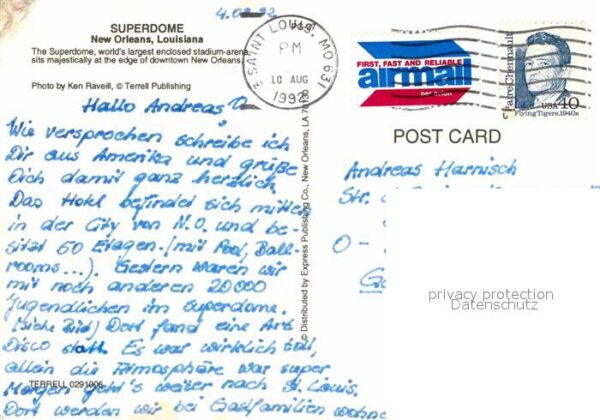 4.08.92
SUPERDOME
New Orleans, Louisiana
The Superdome, world's largest enclosed stadium-arena,
sits majestically at the edge of downtown New Orleans.
Photo by Ken Raveill, © Terrell Publishing
SAINT LOUIS, MO 631
PM
10 AUG
1992
FIRST, FAST AND RELIABLE
airmail
Claire Chennault
USA 40
Flying Tigers, 1940s
POST CARD
Hallo Andreas
Wie versprochen schreibe ich
Dir aus Amerika und grüße
Dich damit ganz herzlich
Das Hotel befindet sich mitten
in der City von N.O. und be-
sitzt 50 Etagen (mit Pool, Ball-
rooms...). Gestern waren wir
mit noch anderen 20000
Jugendlichen im Superdome.
(siehe Bild) Dort fand eine Art
Disco statt. Es war wirklich toll,
allein die Atmosphäre war super
Morgen geht's weiter nach St. Louis.
TERRELL 0291006
Dort werden wir bei Gastfamilien wohne
© Distributed by Express Publishing Co., New Orleans, LA 70130
Andreas Harnisch
Str.
O -
privacy protection
Datenschutz